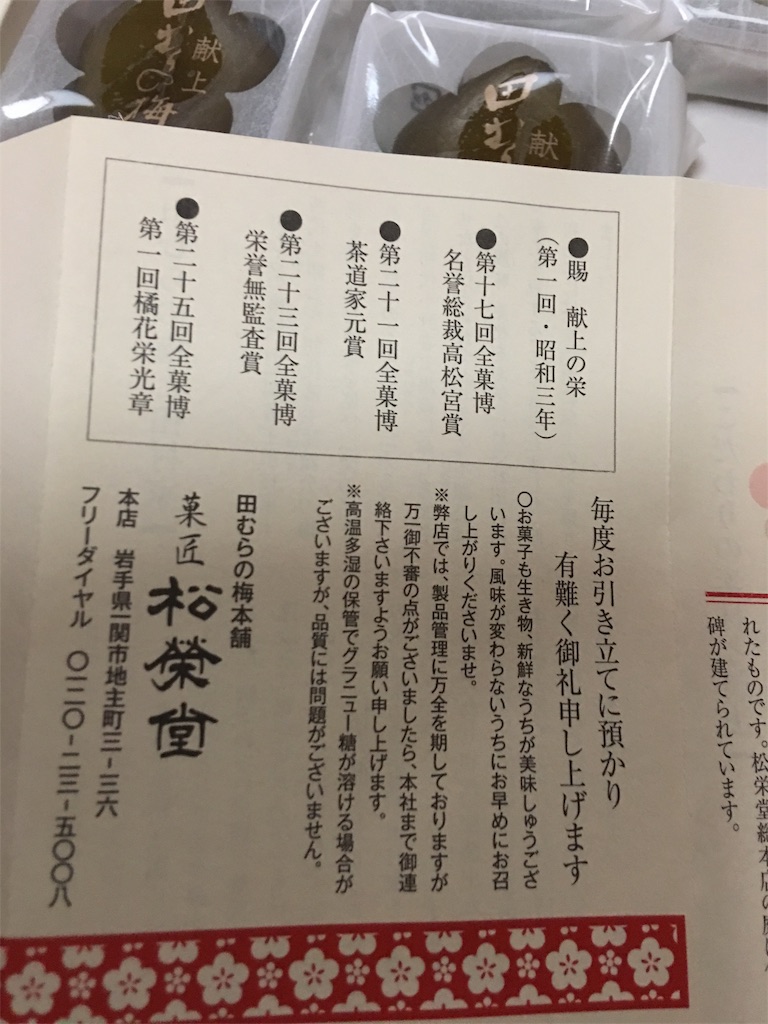 献上
田むらの梅
献
田むら
●賜　献上の栄
（第一回・昭和三年）
●第十七回全菓博
名誉総裁高松宮賞
●第二十一回全菓博
茶道家元賞
●第二十三回全菓博
栄誉無監査賞
●第二十五回全菓博
第一回橘花栄光章
毎度お引き立てに預かり
有難く御礼申し上げます
〇お菓子も生き物、新鮮なうちが美味しゅうござ
います。風味が変わらないうちにお早めにお召
し上がりくださいませ。
※弊店では、製品管理に万全を期しておりますが
万一御不審の点がございましたら、本社まで御連
絡下さいますようお願い申し上げます。
※高温多湿の保管でグラニュー糖が溶ける場合が
ございますが、品質には問題がございません。
田むらの梅本舗
菓匠 松榮堂
本店　岩手県一関市地主町三－三六
フリーダイヤル　〇一二〇－二三－五〇〇八
れたものです。松栄堂総本店の
碑が建てられています。